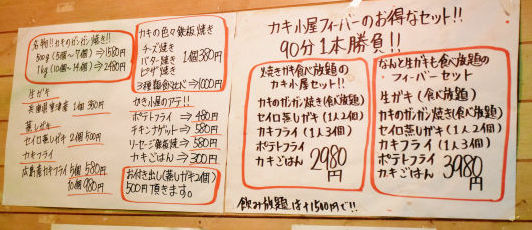 名物!!カキのガンガン焼き!!
500g(5個〜7個)⇒1580円
1kg(10個〜14個)⇒2480円
生ガキ
兵庫県室津産 1個 350円
蒸しガキ
セイロ蒸しガキ 2個 500円
カキフライ
広島産カキフライ 5個 580円
10個 980円
カキの色々鉄板焼き
チーズ焼き
バター焼き
ピザ焼き
1個380円
3種類食べ比べ⇒1000円
かき小屋のアテ!!
ポテトフライ⇒480円
チキンナゲット⇒580円
ソーセージ鉄板焼⇒580円
カキごはん⇒300円
お付き出し(蒸しガキ2個)
500円頂きます。
カキ小屋フィーバーのお得なセット!!
90分1本勝負!!
焼きガキ食べ放題の
カキ小屋セット!!
カキのガンガン焼き(食べ放題)
セイロ蒸しガキ(1人2個)
カキフライ(1人3個)
ポテトフライ
カキごはん
2980円
なんと生ガキも食べ放題の
フィーバーセット
生ガキ(食べ放題)
カキのガンガン焼き(食べ放題)
セイロ蒸しガキ(1人2個)
カキフライ(1人3個)
ポテトフライ
カキごはん
3980円
飲み放題は+1500円で!!